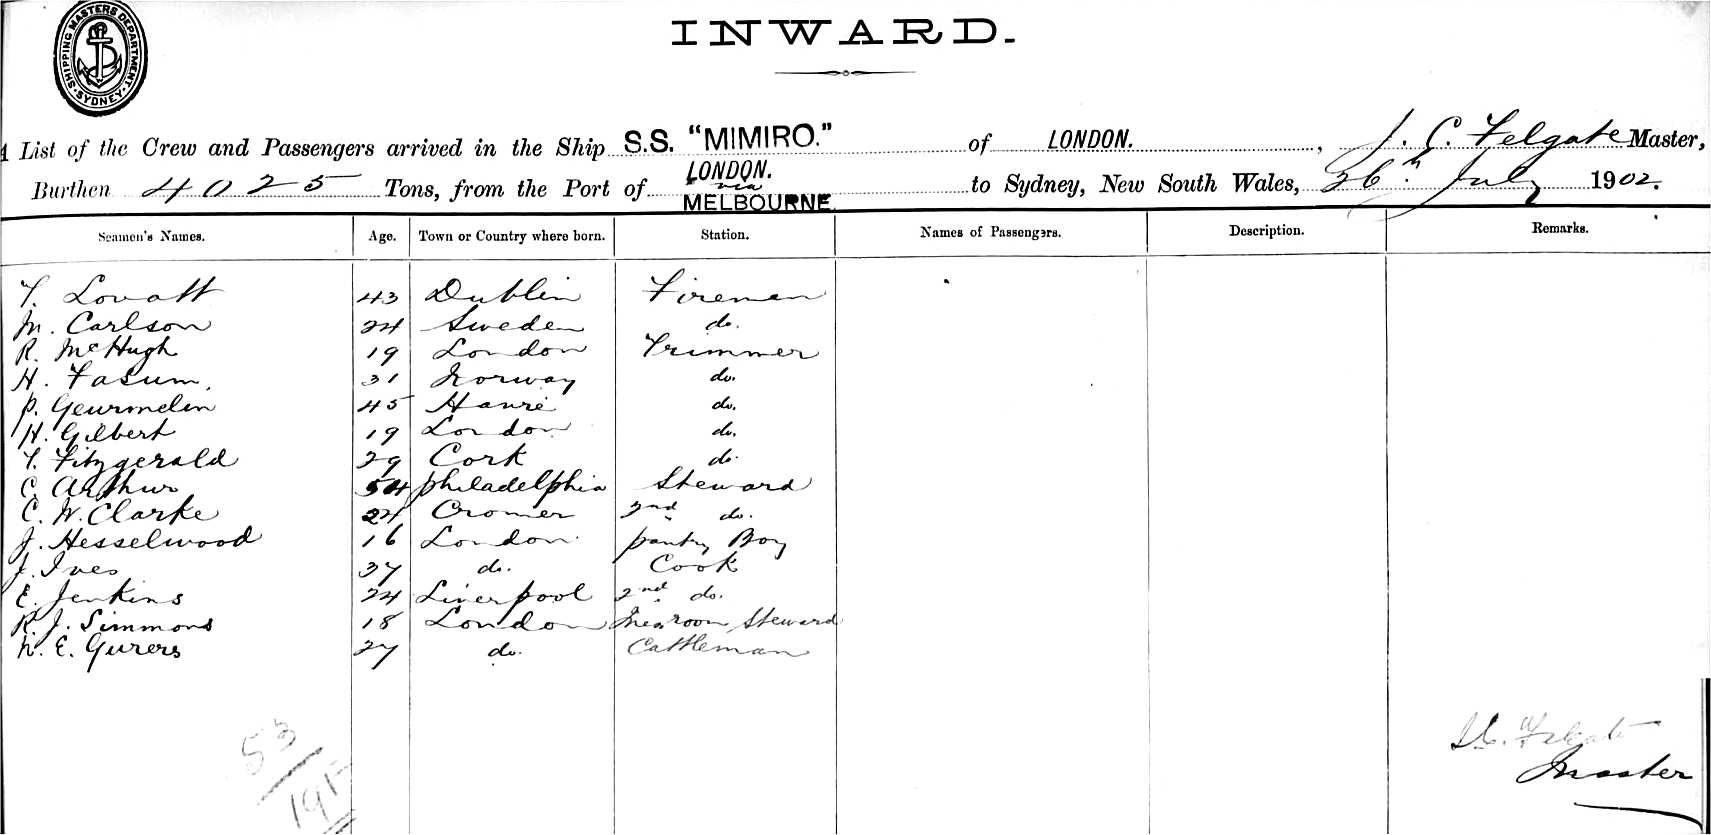 SHIPPING MASTERS DEPARTMENT · SYDNEY ·
INWARD.
A List of the Crew and Passengers arrived in the Ship S.S. "MIMIRO." of LONDON., J. C. Felgate Master,
Burthen 4025 Tons, from the Port of LONDON. via MELBOURNE. to Sydney, New South Wales, 26th July 1902.
Seamen's Names. Age. Town or Country where born. Station. Names of Passengers. Description. Remarks.
T. Lovatt 43 Dublin Fireman
M. Carlson 24 Sweden do.
R. McHugh 19 London Trimmer
H. Fasum. 31 Norway do.
P. Geurmelin 45 Havre do.
H. Gilbert 19 London do.
T. Fitzgerald 29 Cork do.
C. Arthur 54 Philadelphia Steward
C. W. Clarke 24 Cromer 2nd do.
J. Hesselwood 16 London Pantry Boy
J. Ives 37 do. Cook
E. Jenkins 24 Liverpool 2nd do.
R. J. Simmons 18 London Messroom Steward
E. Gurers 27 do. Cattleman
53
Felgate
Master